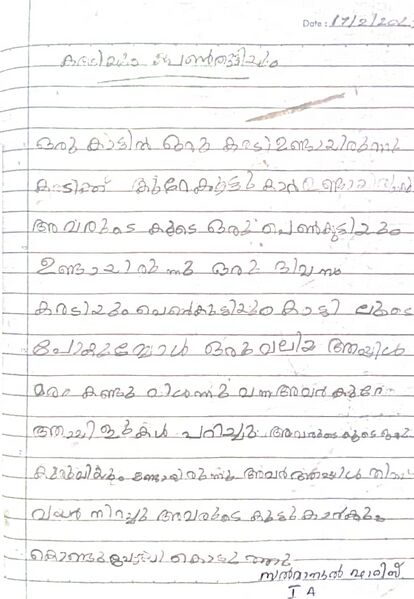 Date: 17/2/202
കരടിയും പെൺകുട്ടിയും
ഒരു കാട്ടിൽ ഒരു കരടി ഉണ്ടായിരുന്നു
കരടിക്ക് കുറേ കൂട്ടുകാർ ഉണ്ടായിരുന്നു
അവരുടെ കൂടെ ഒരു പെൺകുട്ടിയും
ഉണ്ടായിരുന്നു ഒരു ദിവസം
കരടിയും പെൺകുട്ടിയും കാട്ടി ലൂടെ
പോകുമ്പോൾ ഒരു വലിയ ആപ്പിൾ
മരം കണ്ടു വിശന്നു വന്ന അവർ കുറേ
ആപ്പിളുകൾ പറിച്ചു അവരുടെ കൂടെ ഒരു
ഉണ്ടായിരുന്നു അവർ ആപ്പിൾ തിന്ന്
വയർ നിറച്ചു അവരുടെ കൂട്ടുകാർക്കും
കൊണ്ടു പോയി കൊടു ത്തു
സൽമാനുൽ ഫാരിസ്
I A